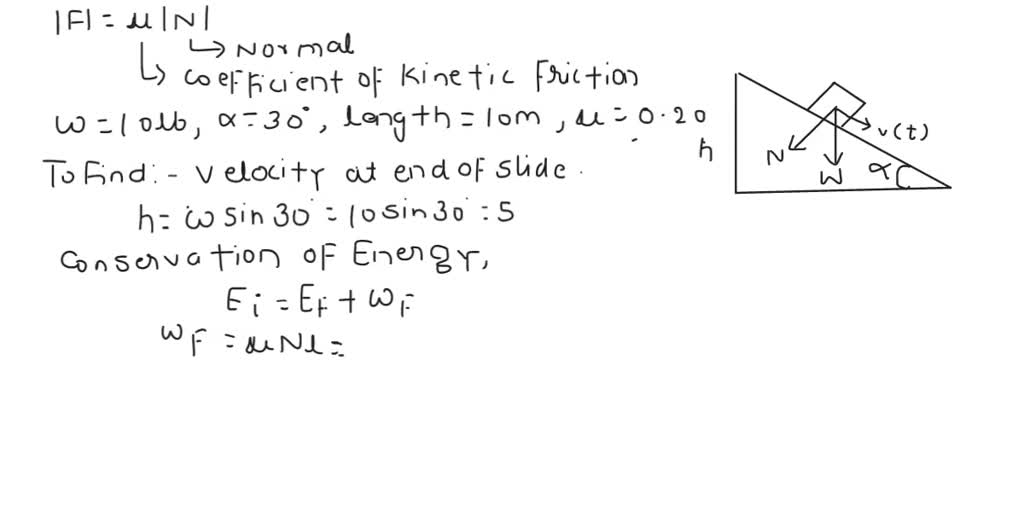 |F| = μ|N|
↳ Normal
↳ coefficient of kinetic friction
W = 10lb, α = 30°, length = 10m, μ = 0.20
To find :- velocity at end of slide.
h = w sin 30° = 10 sin 30° = 5
Conservation of Energy,
Ei = EF + WF
WF = μNl =
h
N
W
v(t)
α